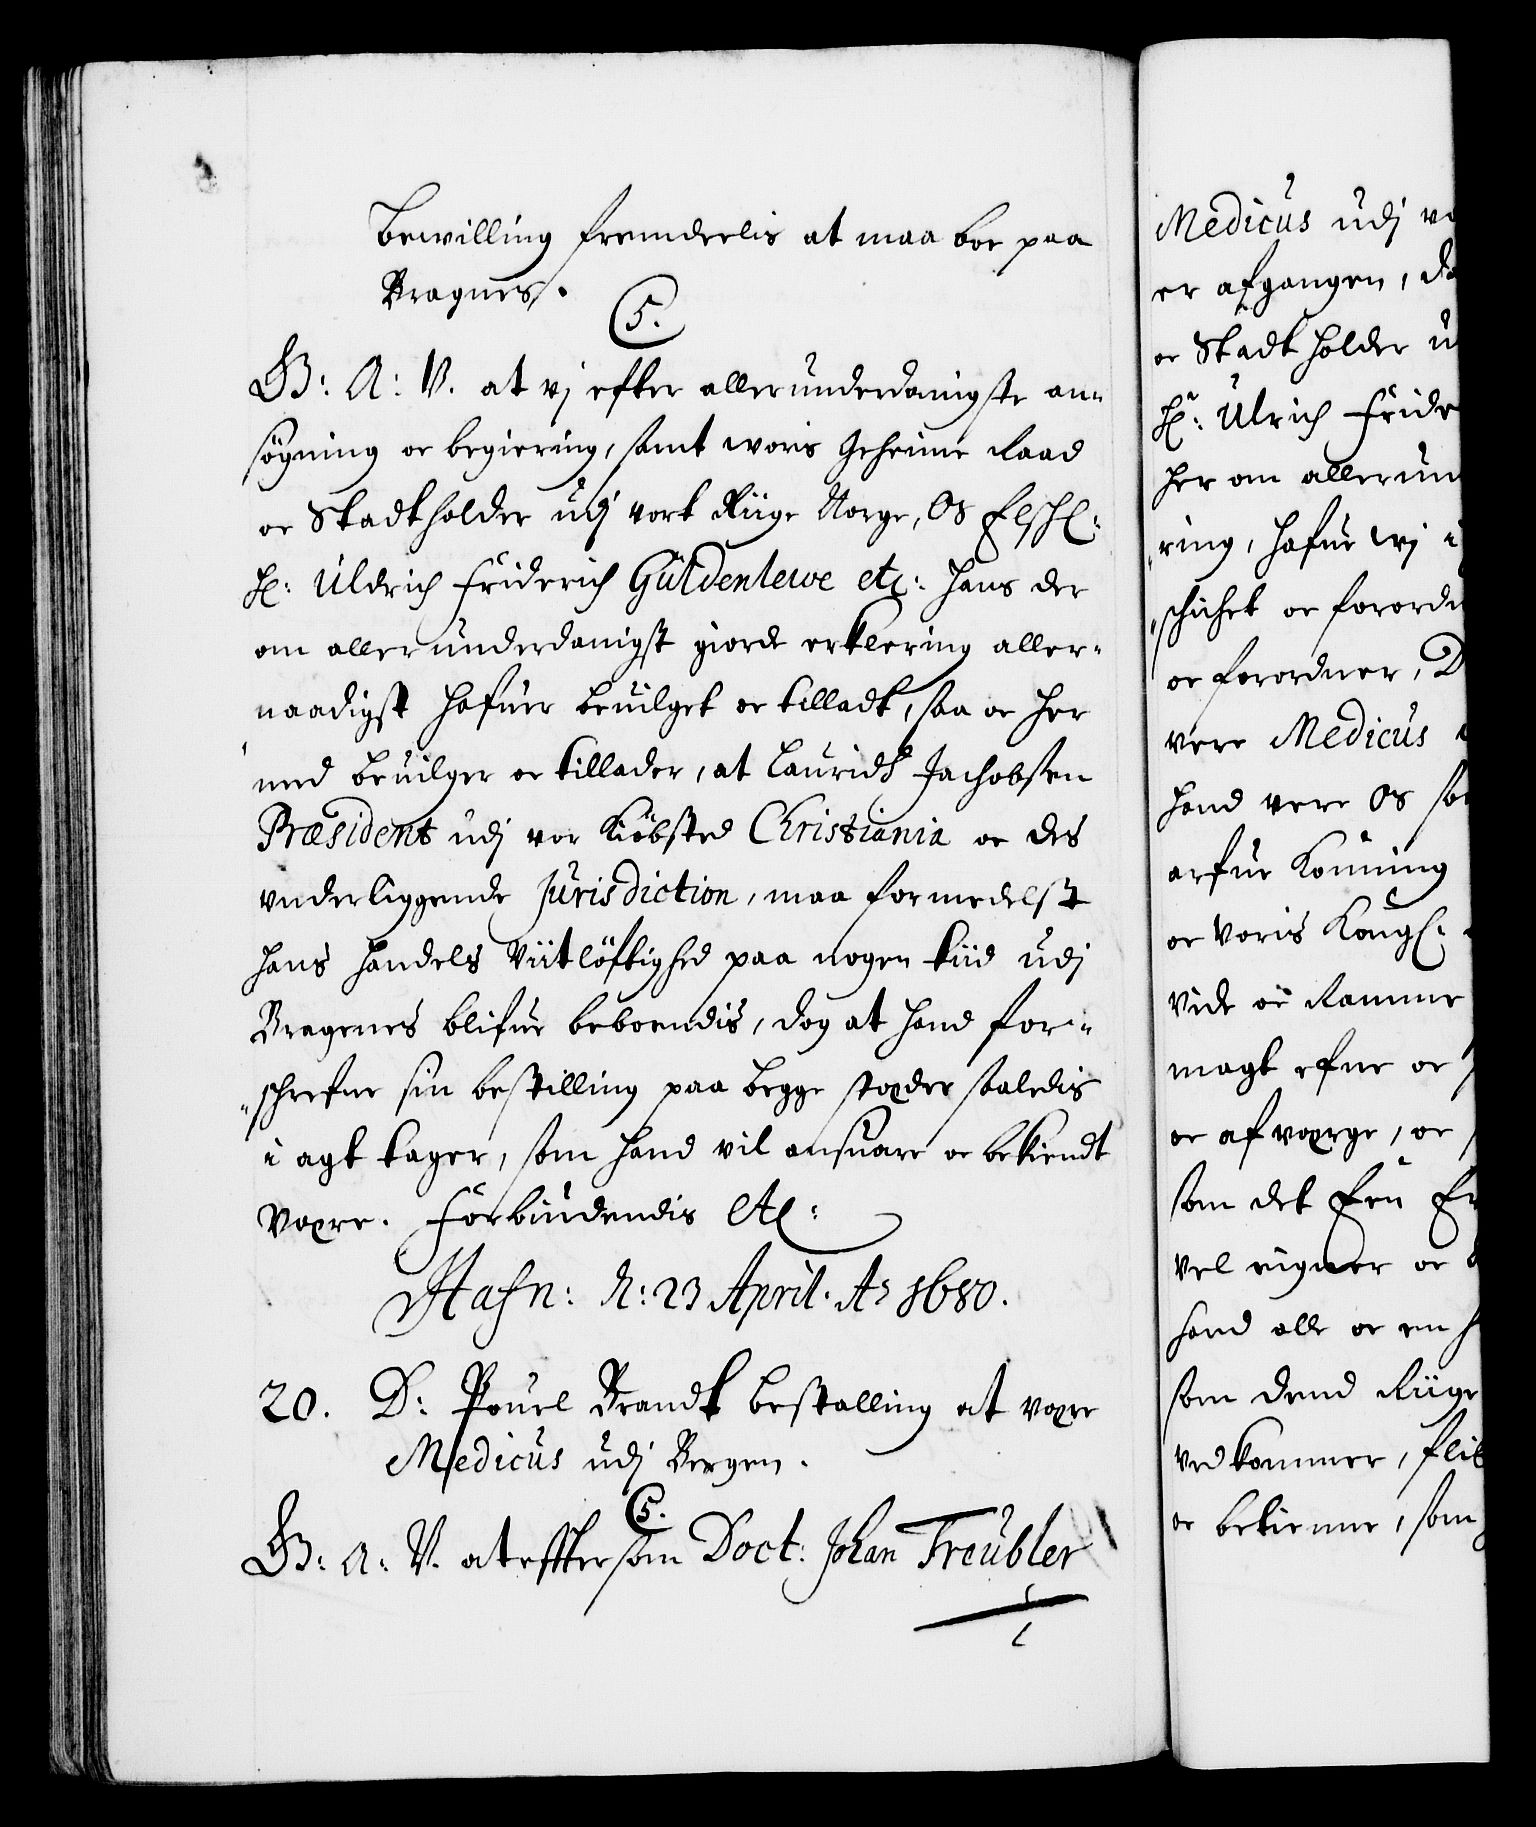 Bewilling fremdeelis at maa boe paa
Bragnes.
C5.
G: A: V. at vj efter allerunderdanigste an-
søgning oc begiering, samt woris Geheime Raad
oc Stadtholder udj vort Riige Norge, Os Elschl:
Hr: Uldrich Friderich Güldenlewe etc: hans der
om allerunderdanigst giorde erklering aller-
naadigst hafuer beuilget oc tilladt, saa oc her
med beuilger oc tillader, at Lauridz Jachobsen
Præsident udj vor Kiøbsted Christiania oc des
vnderliggende Jurisdiction, maa formedelst
hans Handels Viitløftighed paa nogen tiid udj
Bragenes blifue beboendis, dog at hand for-
schrefne sin bestilling paa begge stæder saaledis
i agt tager, som hand vil ansuare oc bekiendt
være. Forbiudendis etc:
Hafn: d: 23 April. Ao 1680.
20. D: Pouel Brandt bestalling at være
Medicus udj Bergen.
C5.
G: A: V. at eftersom Doct: Johan Treubler
Medicus udj
er afgangen,
oc Stadtholder
Hr: Ulrich Fride
her om allerun
ring, hafue wj
schichet oc forord
oc forordner, D
vere Medicus
hand vere Os
arfue Konning
oc Voris Kongl:
Vide oc Ramme
magt efne oc
oc afværge, oc
som det Een
vel eigner oc
hand alle oc en
som dend Riige
ved kommer,
oc bekienne, som